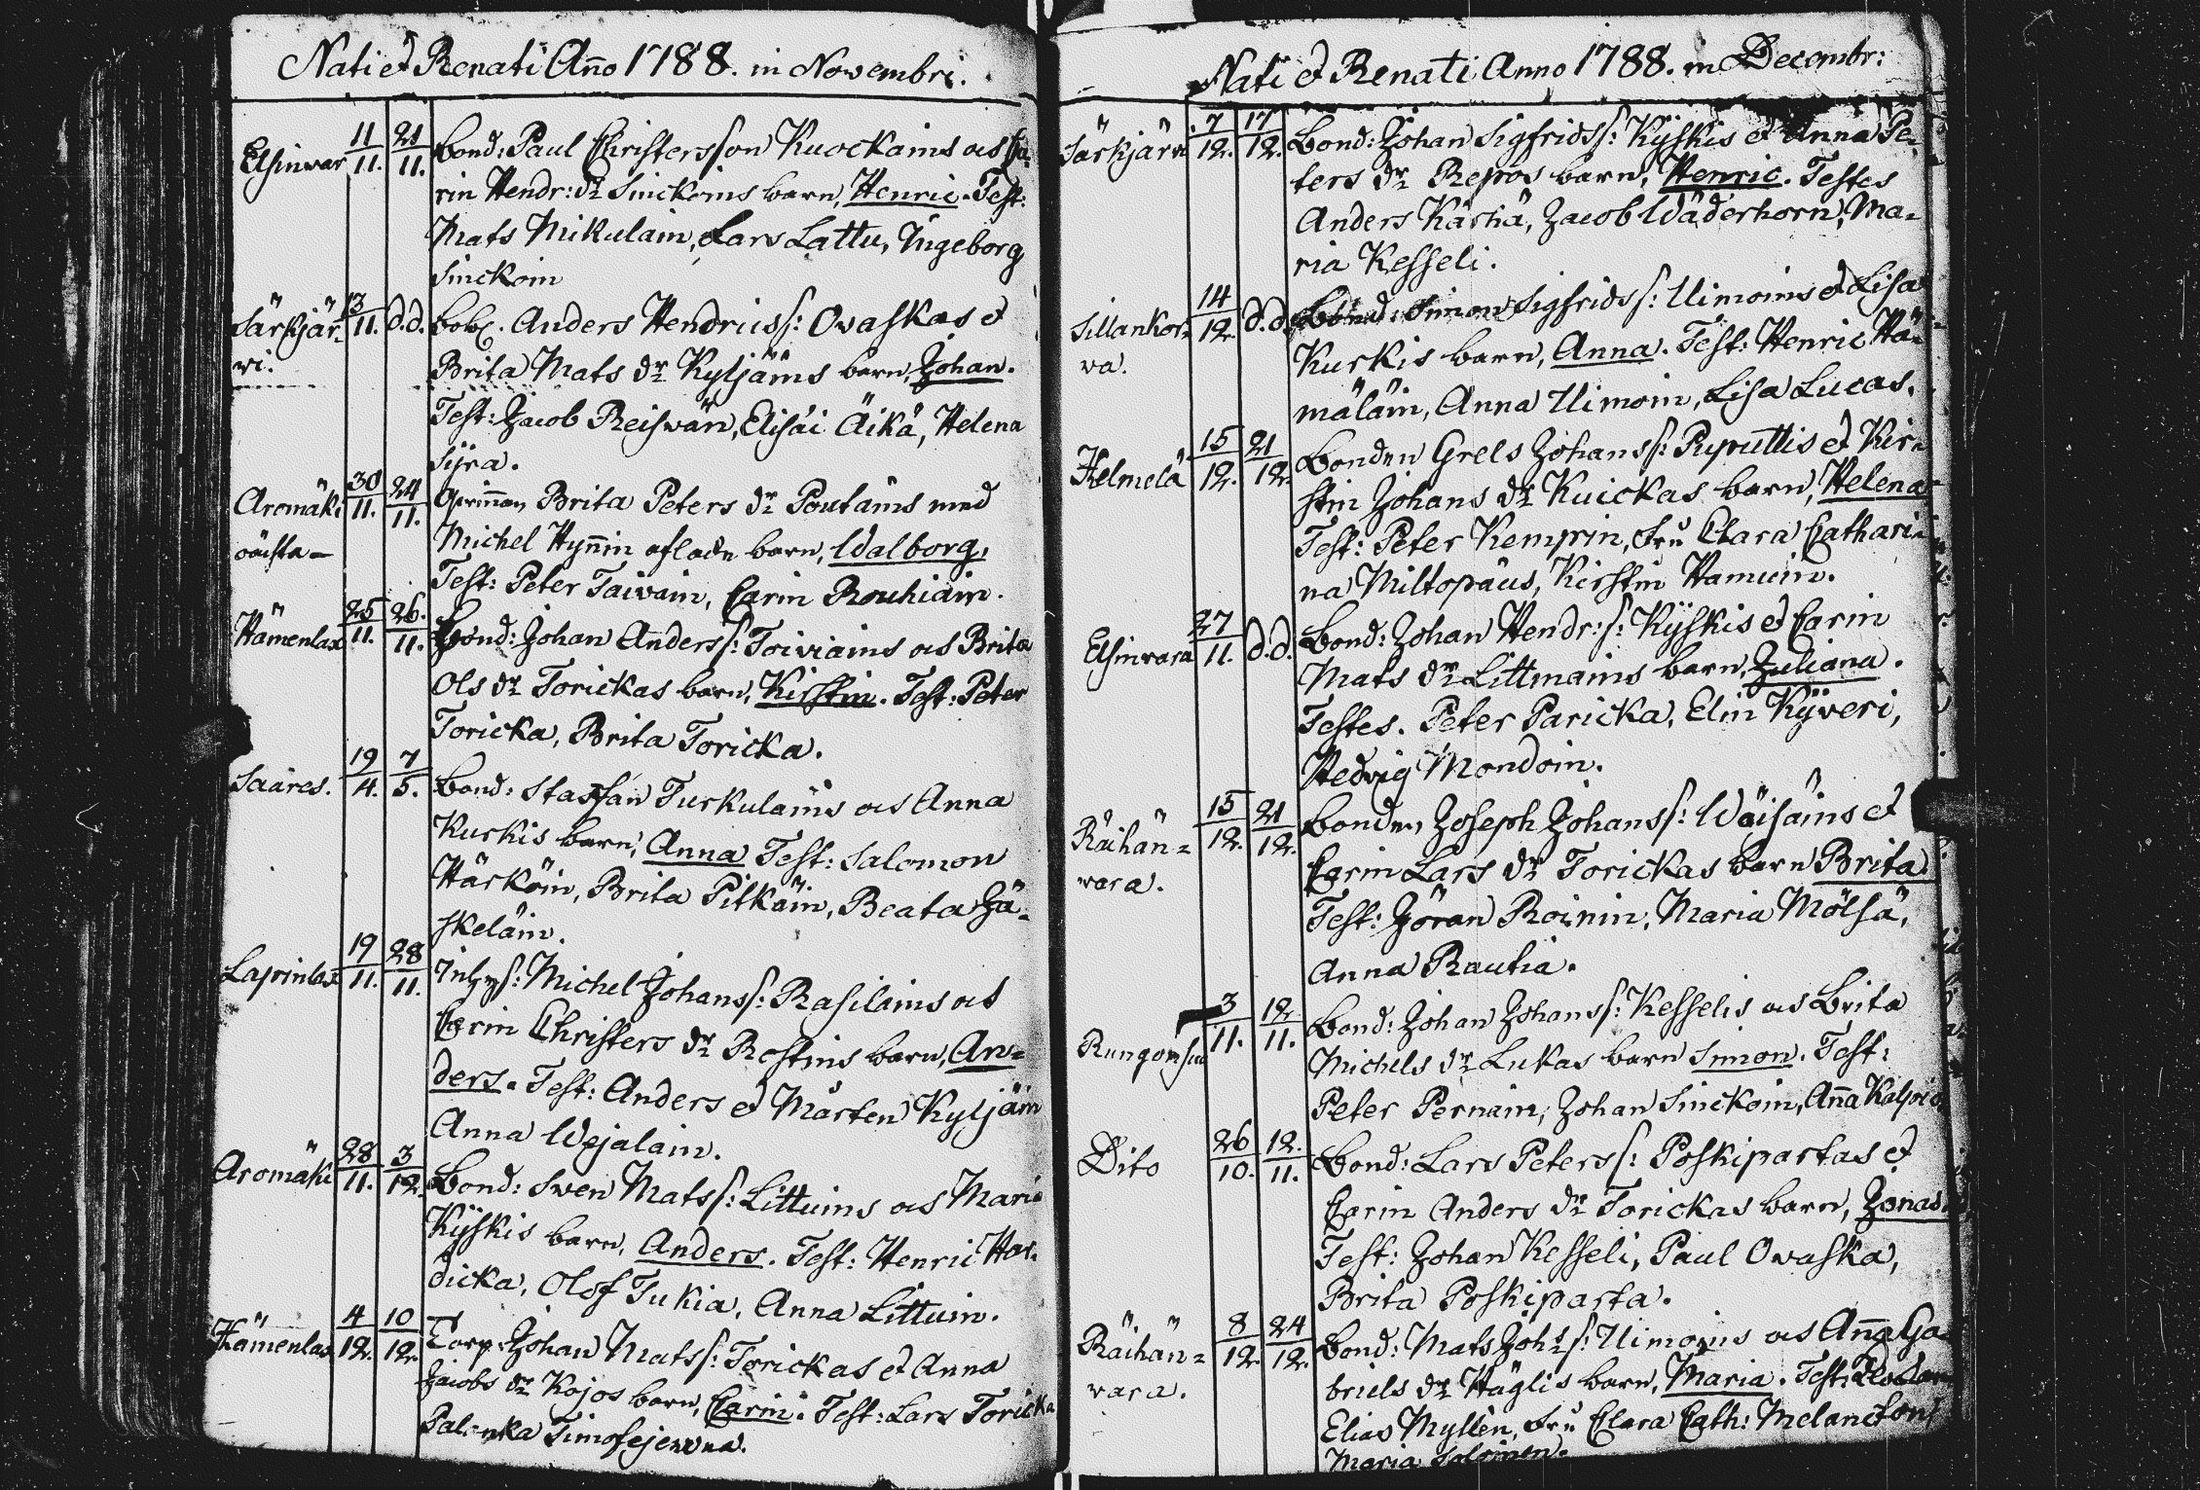 Nati et Renati Año 1788. in Novembri.
Elsinwar 11/11. 21/11. Bond: Paul Christersson Kuockains och Ca-
rin Hendr: dr Sinckoins barn, Henric. Test:
Mats Mikulain, Lars Lattu, Ingeborg
Sinckoin
Särkjär- 13/11. d.d. Anders Hendricss: Ovaskas et
vi. Brita Mats dr Kyljäins barn, Johan.
Test: Jacob Reiswän, Elisái Äikä, Helena
Sijra.
Aromäki 30/11. 24/11. Brita Peters dr Poutains med
Michel Hyñin aflade barn, Walborg,
Test: Peter Taivain, Carin Rouhiain.
Hämenlax 25/11. 26./11. Bond: Johan Anderss: Toiviains och Brita
Ols dr Torickas barn, Kirstin. Test: Peter
Toricka, Brita Toricka.
Saares. 19/4. 7/5. Bond: Staffan Turkulains och Anna
Kurkis barn, Anna Test: Salomon
Härköin, Brita Pitkäin, Beata Jä-
skeläin.
Lapinlax 19/11. 28/11. Inhys: Michel Johanss: Rasilains och
Carin Christers dr Rostins barn, An-
ders. Test: Anders et Mårten Kyljäin
Anna Wejalain.
Aromäki 28/11. 3/12. Bond: Swen Matss: Littuins och Maria
Kijskis barn, Anders. Test: Henric Har-
dicka, Olof Tukia, Anna Littuin.
Hämenlax 4/12. 10/12. Torp: Johan Matss: Torickas et Anna
Jacobs dr Kojos barn, Carin. Test: Lars Toricka
Timofejewna.
Nati et Renati Anno 1788. in Decembr:
Särkjärvi 7/12. 17/12. Bond: Johan Sigfridss: Kijskis et Anna Pe-
ters dr Repos barn, Henric. Testes
Anders Kärhä, Jacob Wäderhorn, Ma-
ria Kesseli.
Sillankor- 14/12. d.d. Bond: Simon Sigfridss: Uimoins et Lisa
va. Kurkis barn, Anna. Test: Henric Hä-
mäläin, Anna Uimoin, Lisa Lucas.
Helmelä 15/12. 21/12. Bonden Grels Johanss: Pyputtis et Kir-
stin Johans dr Kuickas barn, Helena
Test: Peter Kemppin, Fru Clara Cathari-
na Miltopäus, Kirstin Hamuin.
Elsinvara 27/11. d.d. Bond: Johan Hendr: s: Kijskis et Carin
Mats dr Littmains barn, Juliana.
Testes. Peter Paricka, Elin Kijveri,
Hedvig Mondoin.
Räihän= 15/12. 21/12. Bonden Joseph Johanss: Wäisäins et
vara. Carin Lars dr Torickas barn Brita.
Test: Jöran Roinin, Maria Mölsä,
Anna Rautia.
3/11. 12/11. Bond: Johan Johanss: Kesselis och Brita
Michels dr Lukas barn Simon. Test:
Peter Pernain, Johan Sinckoin, Aña
Dito 26/10. 12./11. Bond: Lars Peterss: Poskipartas et
Carin Anders dr Torickas barn, Jonas
Test: Johan Kesseli, Paul Owaska,
Brita Poskiparta.
Räihän= 8/12 24/12. Bond: Mats Johs s: Uimoins och Aña Ga-
vara. briels dr Häglis barn, Maria. Test:
Elias Myllen, Fru Clara Cath: Melancton
Maria